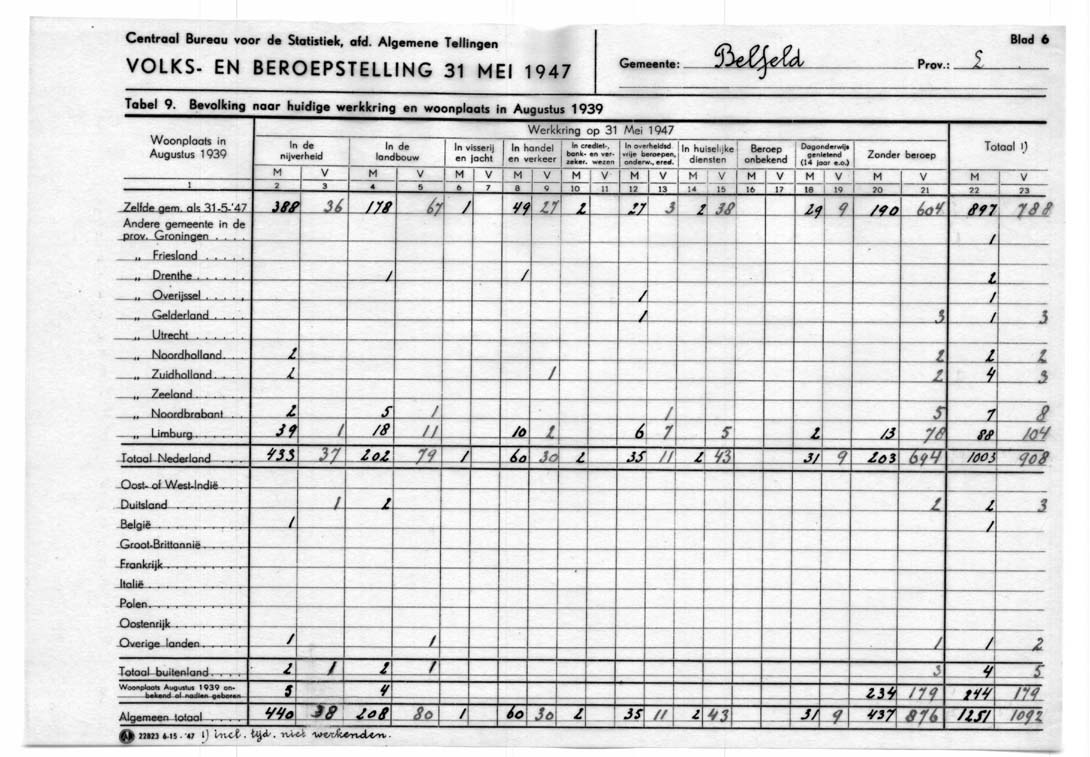 Centraal Bureau voor de Statistiek, afd. Algemene Tellingen
VOLKS- EN BEROEPSTELLING 31 MEI 1947
Gemeente: Belfeld Prov.: L
Blad 6
Tabel 9. Bevolking naar huidige werkkring en woonplaats in Augustus 1939
Woonplaats in Augustus 1939
Werkkring op 31 Mei 1947
In de nijverheid
In de landbouw
In visserij en jacht
In handel en verkeer
In crediet-, bank- en verzeker. wezen
In overheidsd. vrije beroepen, onderw., ered.
In huiselijke diensten
Beroep onbekend
Dagonderwijs genietend (14 jaar e.o.)
Zonder beroep
Totaal 1)
M V M V M V M V M V M V M V M V M V M V M V
1 2 3 4 5 6 7 8 9 10 11 12 13 14 15 16 17 18 19 20 21 22 23
Zelfde gem. als 31-5-'47 388 36 178 67 1 49 27 2 27 3 2 38 29 9 190 604 897 788
Andere gemeente in de
prov. Groningen . . . . 1
„ Friesland . . . . .
„ Drenthe . . . . . 1 1 2
„ Overijssel . . . . , 1 1
„ Gelderland . . . . 1 3 1 3
„ Utrecht . . . . .
„ Noordholland. . . . 2 2 2 2
„ Zuidholland. . . . 2 1 2 4 3
„ Zeeland . . . . .
„ Noordbrabant . . 2 5 1 1 5 7 8
„ Limburg. . . . . 39 1 18 11 10 2 6 7 5 2 13 78 88 104
Totaal Nederland . . . . 433 37 202 79 1 60 30 2 35 11 2 43 31 9 203 694 1003 908
Oost- of West-Indië . . .
Duitsland . . . . . . 1 2 2 2 3
België . . . . . . . 1 1
Groot-Brittannië . . . . .
Frankrijk . . . . . . .
Italië . . . . . . . .
Polen. . . . . . . . .
Oostenrijk . . . . . .
Overige landen . . . . 1 1 1 1 2
Totaal buitenland . . . . 2 1 2 1 3 4 5
Woonplaats Augustus 1939 onbekend of nadien geboren 5 4 234 179 244 179
Algemeen totaal . . . . 440 38 208 80 1 60 30 2 35 11 2 43 31 9 437 876 1251 1092
22823 6-15 - '47 1) incl. tijd. niet werkenden.